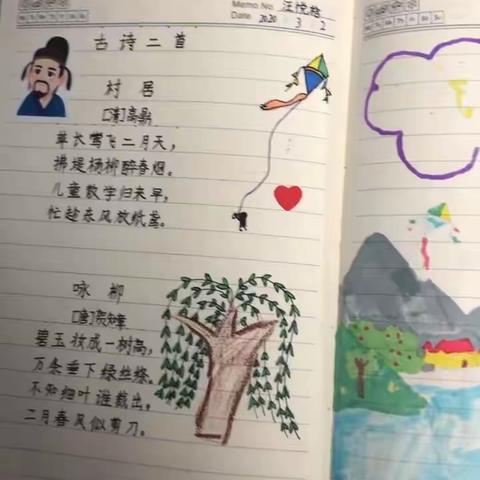 Memo No. 汪悦格
Date 2020 3 2
古诗二首
村居
[清]高鼎
草长莺飞二月天,
拂堤杨柳醉春烟。
儿童散学归来早,
忙趁东风放纸鸢。
咏柳
[唐]贺知章
碧玉妆成一树高,
万条垂下绿丝绦。
不知细叶谁裁出,
二月春风似剪刀。